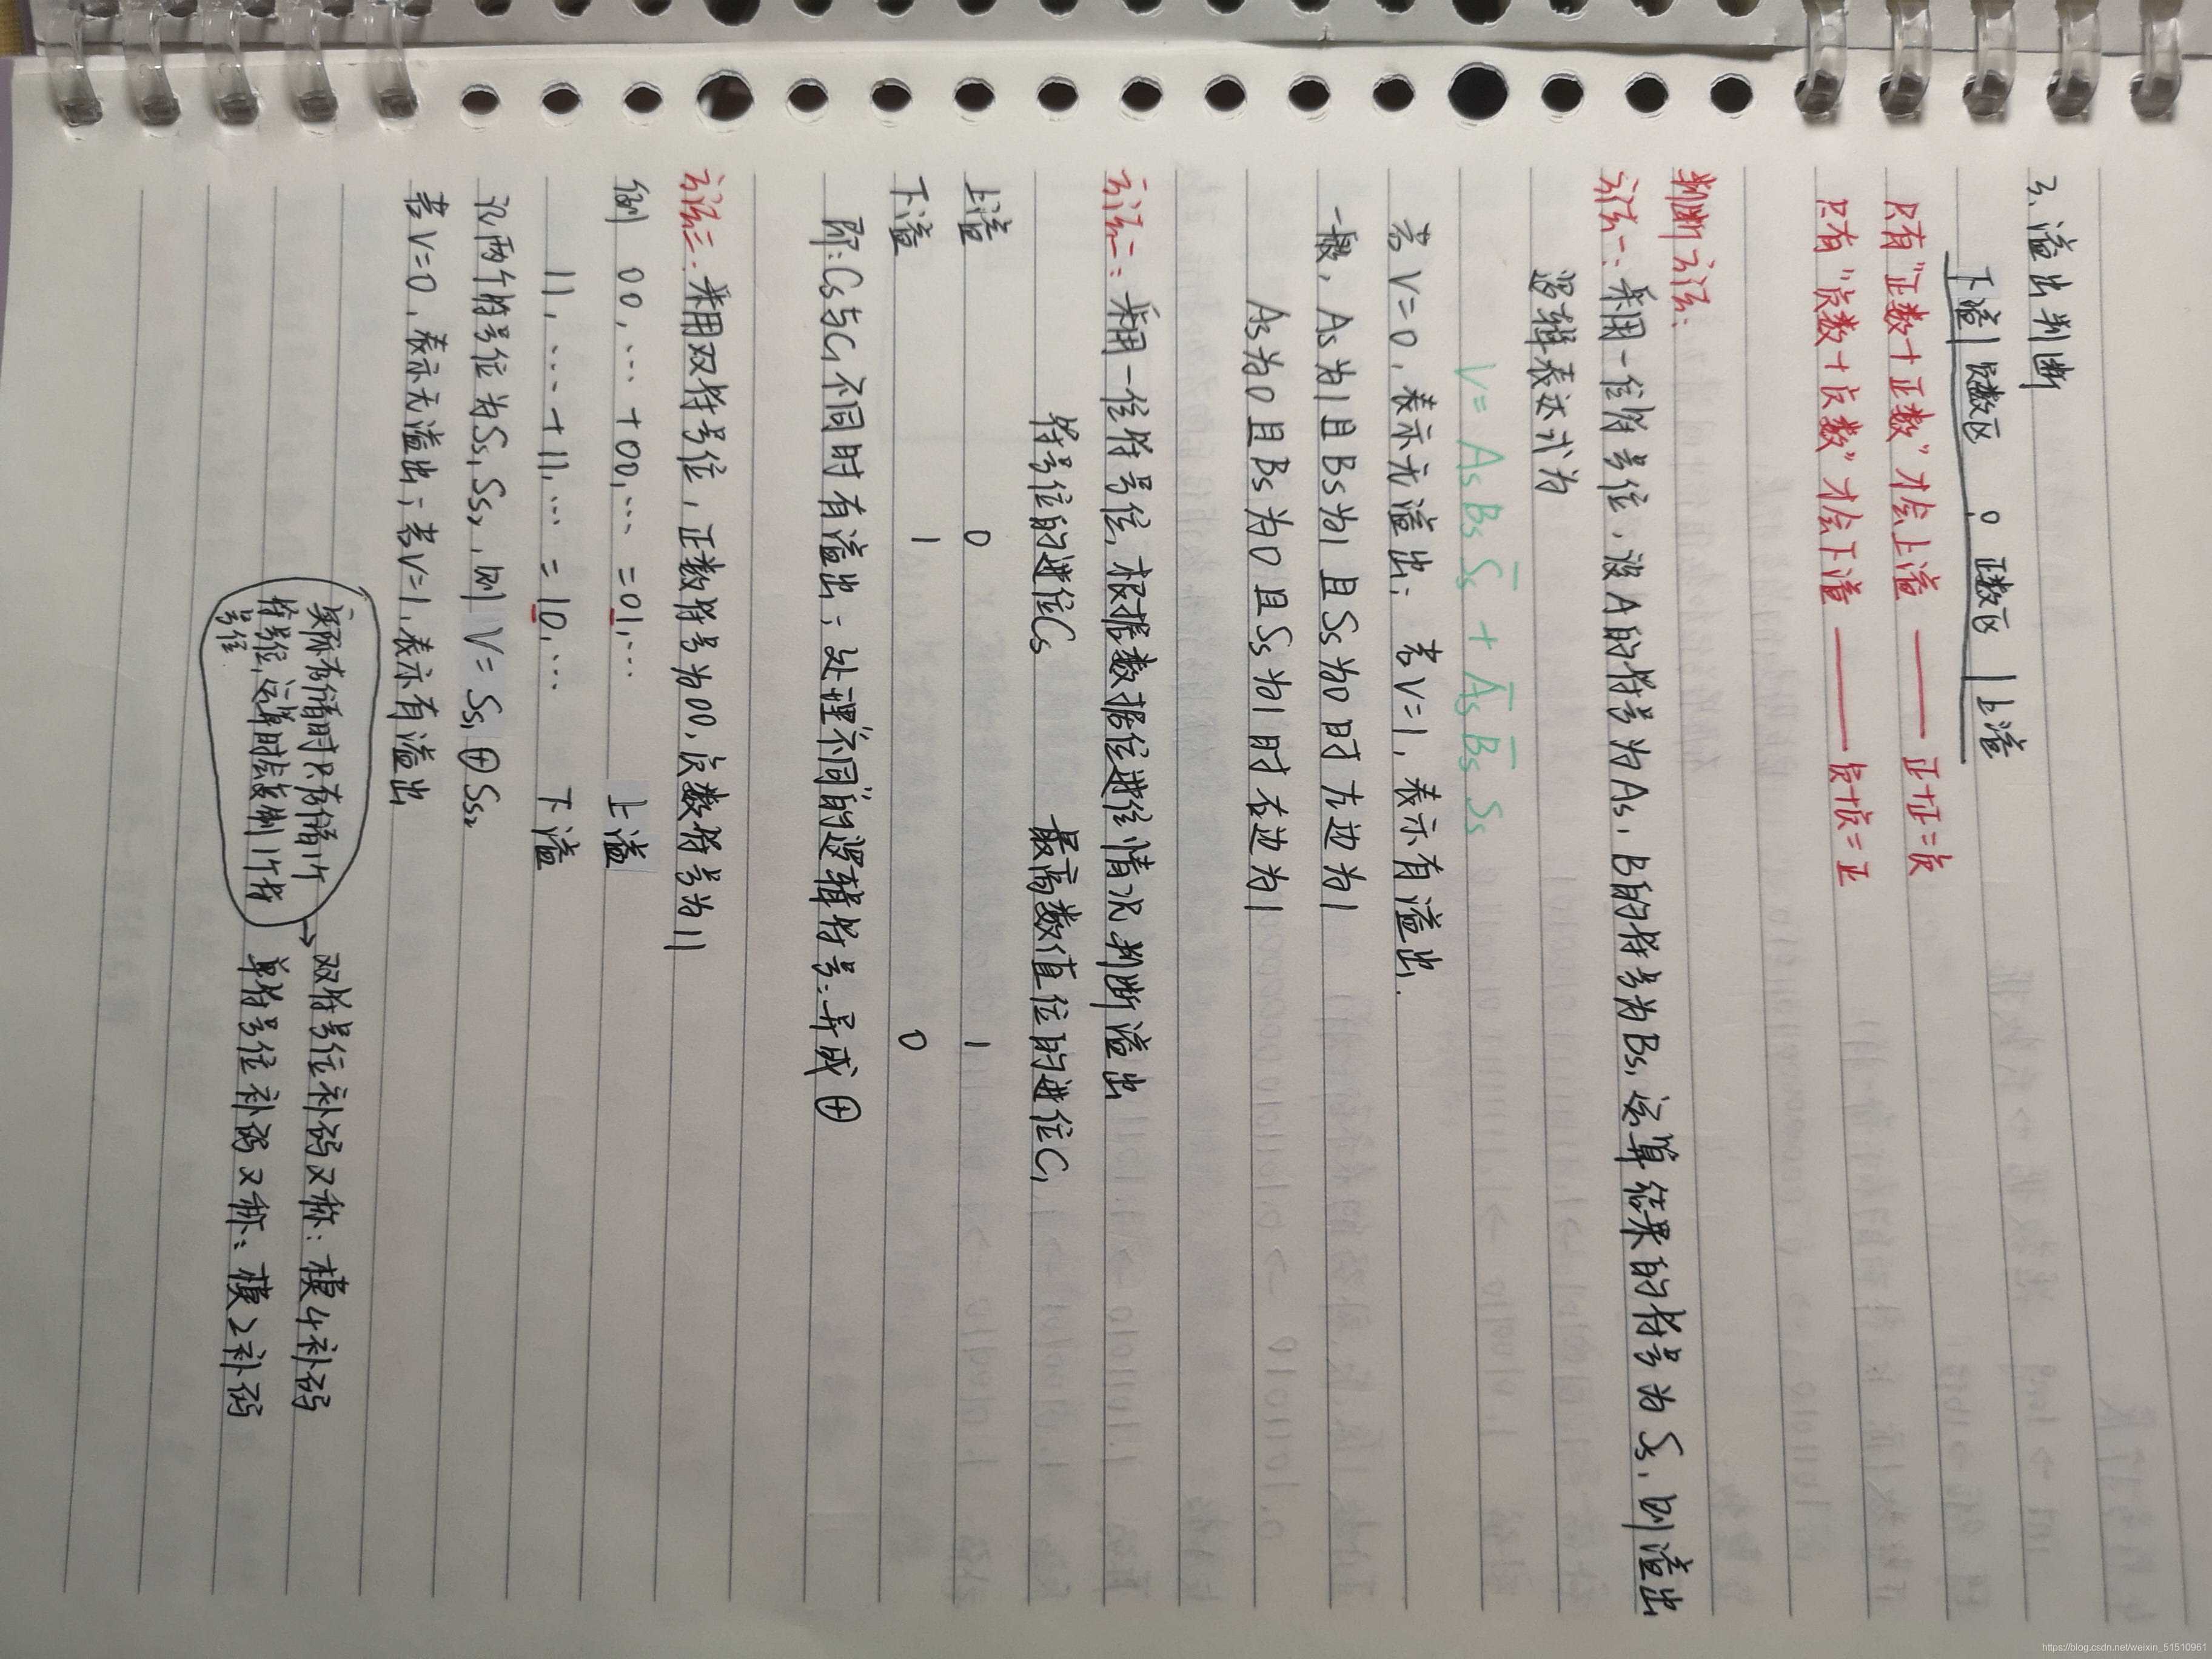 2、溢出判断
下溢 | 负数区 0 正数区 | 上溢
只有“正数+正数”才会上溢 —— 正+正=负
只有“负数+负数”才会下溢 —— 负+负=正
判断方法:
方法一:采用一位符号位,设A的符号为As,B的符号为Bs,运算结果的符号为Ss,则溢出
逻辑表达式为
V = AsBsS̅s̅ + A̅s̅B̅s̅Ss
若V=0,表示无溢出;若V=1,表示有溢出.
一般,As为1且Bs为1且Ss为0时左边为1
As为0且Bs为0且Ss为1时右边为1
方法二:采用一位符号位,根据数据位进位情况判断溢出
符号位的进位Cs 最高数值位的进位C1
上溢 0 1
下溢 1 0
即:Cs与C1不同时有溢出;处理“不同”的逻辑符号:异或⊕
方法三:采用双符号位,正数符号为00,负数符号为11
例 00,… +00,… =01,… 上溢
11,… +11,… =10,… 下溢
记两个符号位为Ss1Ss2,则 V=Ss1⊕Ss2
若V=0,表示无溢出;若V=1,表示有溢出
实际存储时只存储1个
符号位,运算时会复制1个符
号位
→双符号位补码又称:模4补码
单符号位补码又称:模2补码
https://blog.csdn.net/weixin_51510961